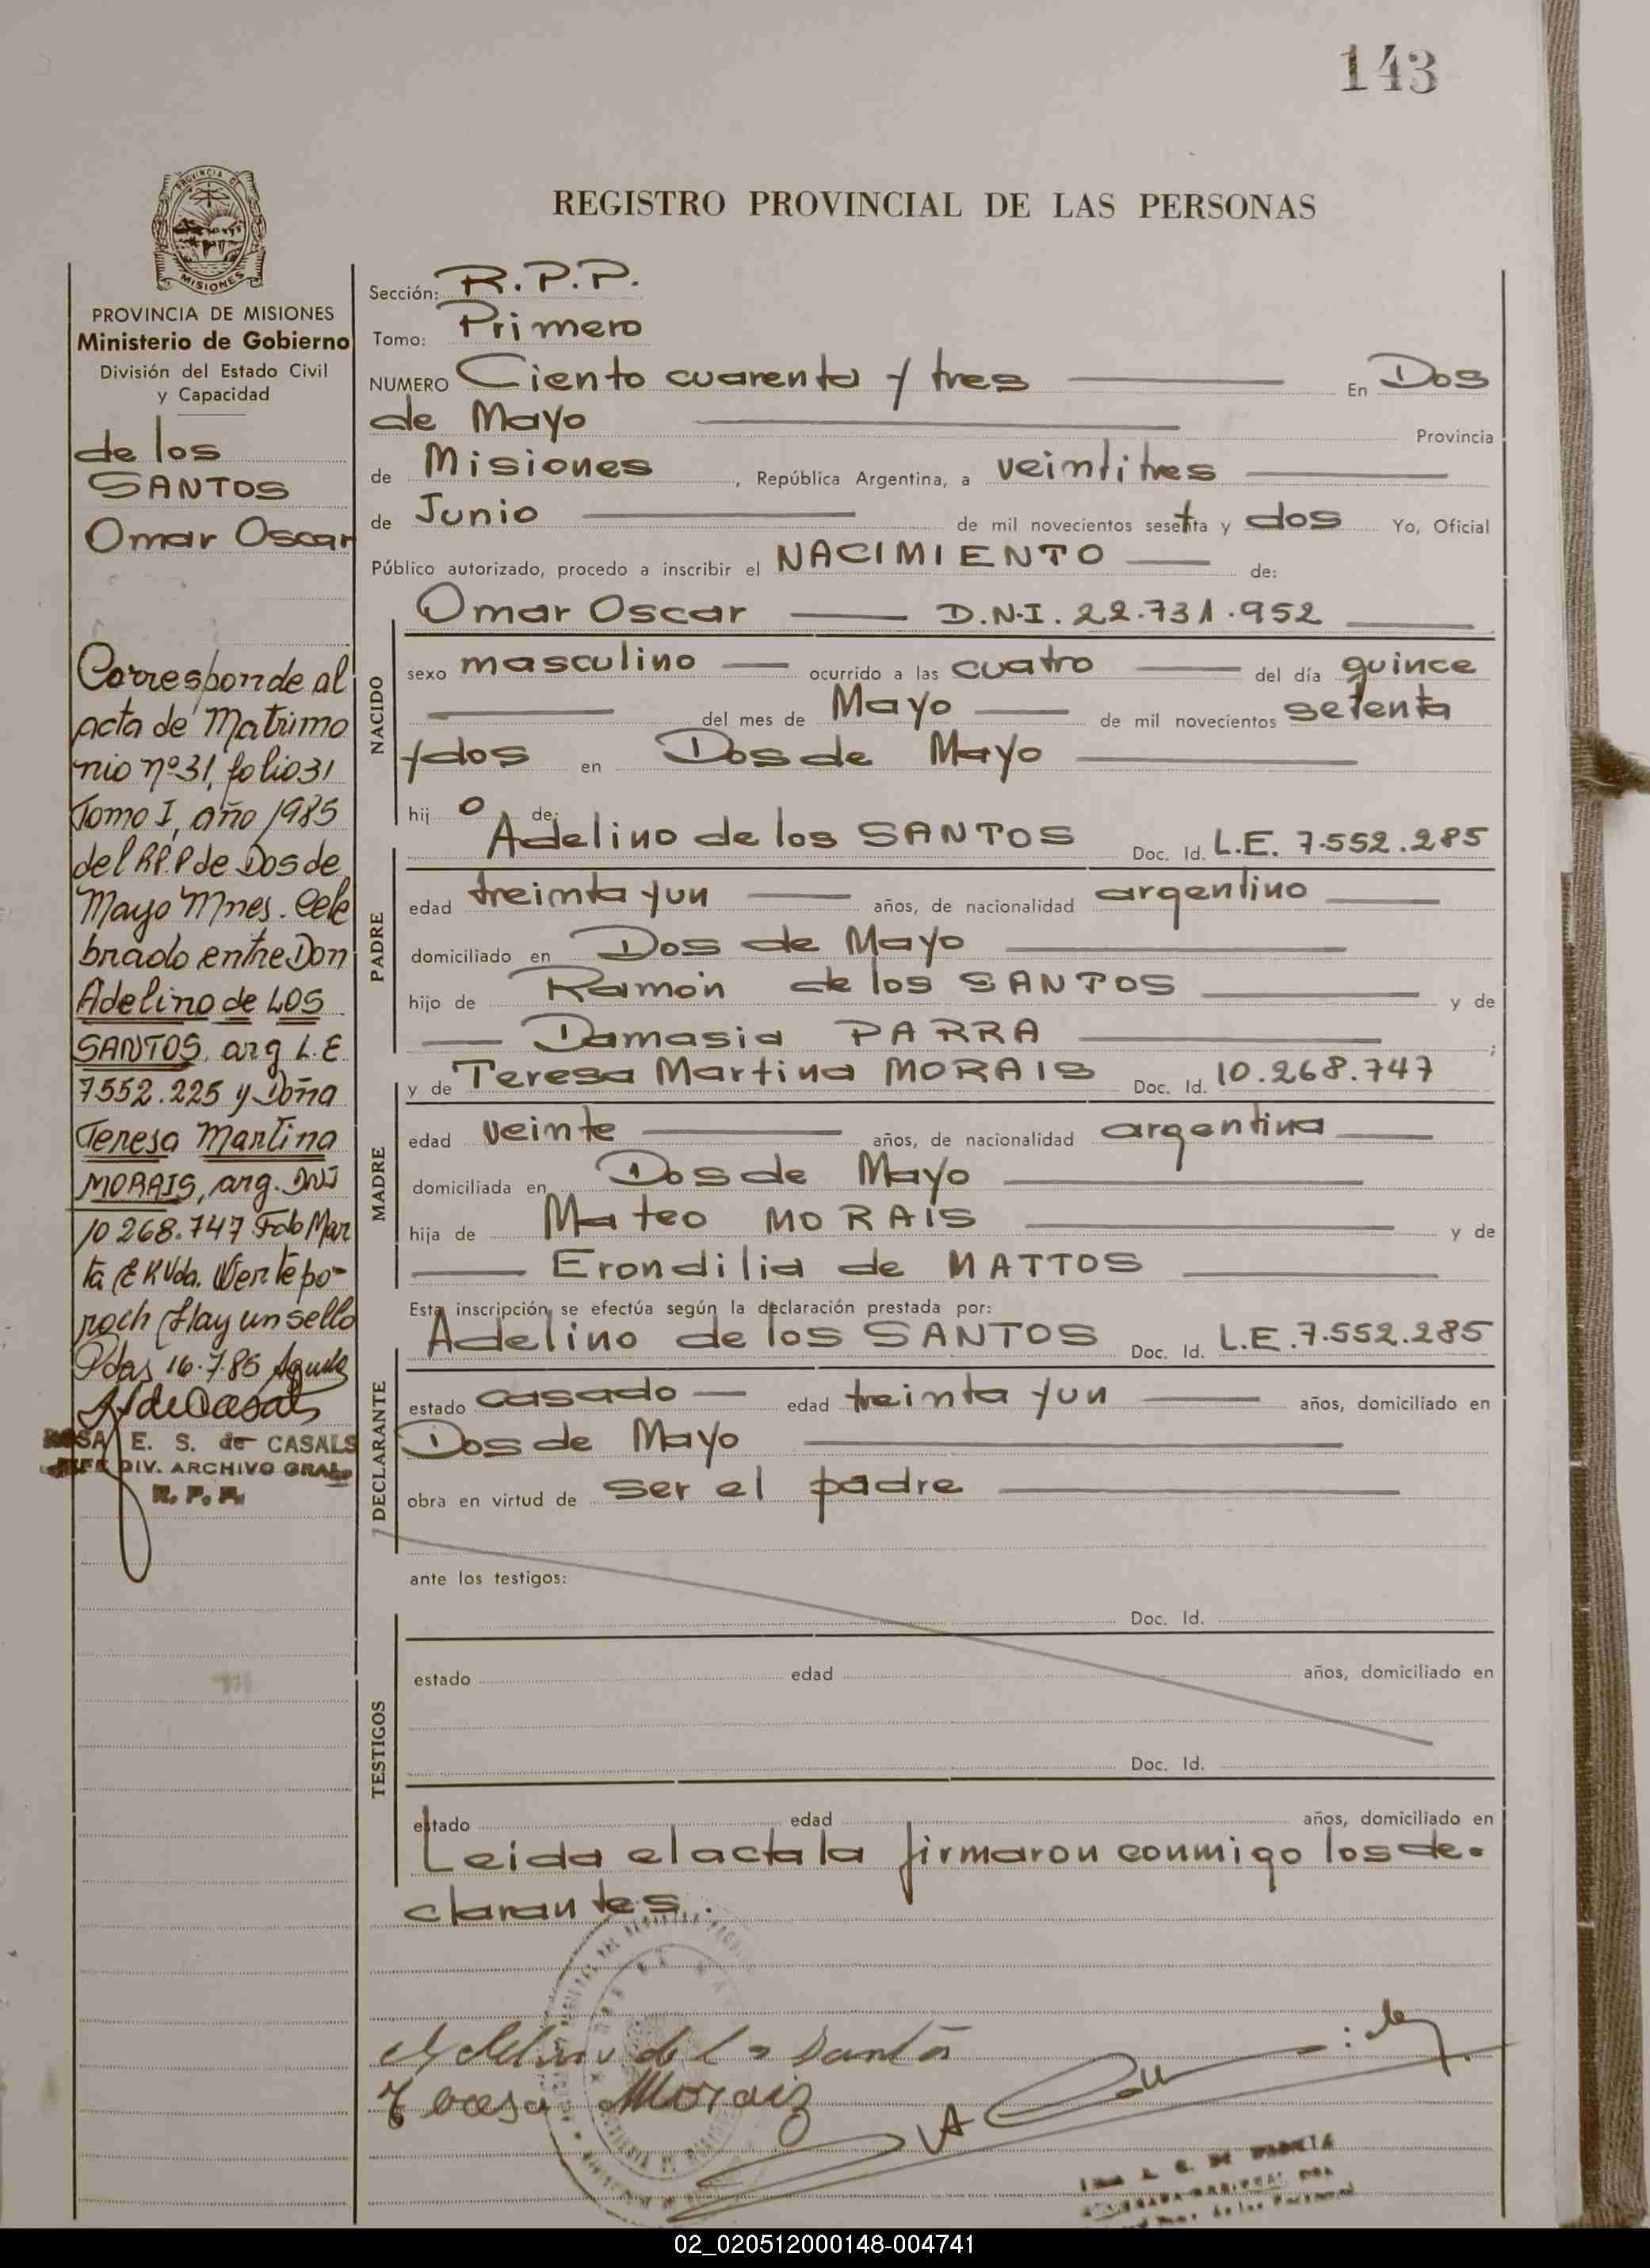 143
REGISTRO PROVINCIAL DE LAS PERSONAS
MISIONES
PROVINCIA DE MISIONES
Ministerio de Gobierno
División del Estado Civil
y Capacidad
de los
SANTOS
Omar Oscar
Corresponde al
acta de Matrimo
nio nº 31, folio 31
Tomo I, año 1985
del R.P.P de Dos de
Mayo Mnes. Cele
brado entre Don
Adelino de LOS
SANTOS, arg L.E
7552.225 y Doña
Teresa Martina
MORAIS, arg. DNI
10 268.747 Fdo Mar
ta E K Vda.
roch (Hay un sello
Pdas 16.7.85
ROSA E. S. de CASALS
JEFE DIV. ARCHIVO GRAL.
R. P. P.
Sección: R.P.P.
Tomo: Primero
NUMERO Ciento cuarenta y tres En Dos
de Mayo Provincia
de Misiones, República Argentina, a veintitres
de Junio de mil novecientos setenta y dos Yo, Oficial
Público autorizado, procedo a inscribir el NACIMIENTO de:
Omar Oscar D.N.I. 22.731.952
NACIDO
sexo masculino ocurrido a las cuatro del día quince
del mes de Mayo de mil novecientos setenta
y dos en Dos de Mayo
hij o de:
Adelino de los SANTOS Doc. Id. L.E. 7.552.285
PADRE
edad treinta y un años, de nacionalidad argentino
domiciliado en Dos de Mayo
hijo de Ramón de los SANTOS y de
Damasia PARRA ;
y de Teresa Martina MORAIS Doc. Id. 10.268.747
MADRE
edad veinte años, de nacionalidad argentina
domiciliada en Dos de Mayo
hija de Mateo MORAIS y de
Erondilia de MATTOS
Esta inscripción se efectúa según la declaración prestada por:
Adelino de los SANTOS Doc. Id. L.E. 7.552.285
DECLARANTE
estado casado edad treinta y un años, domiciliado en
Dos de Mayo
obra en virtud de ser el padre
ante los testigos:
Doc. Id.
TESTIGOS
estado edad años, domiciliado en
Doc. Id.
estado edad años, domiciliado en
Leida el acta la firmaron conmigo los de-
clarantes.
Adelino de los Santos
Teresa Morais
02_020512000148-004741